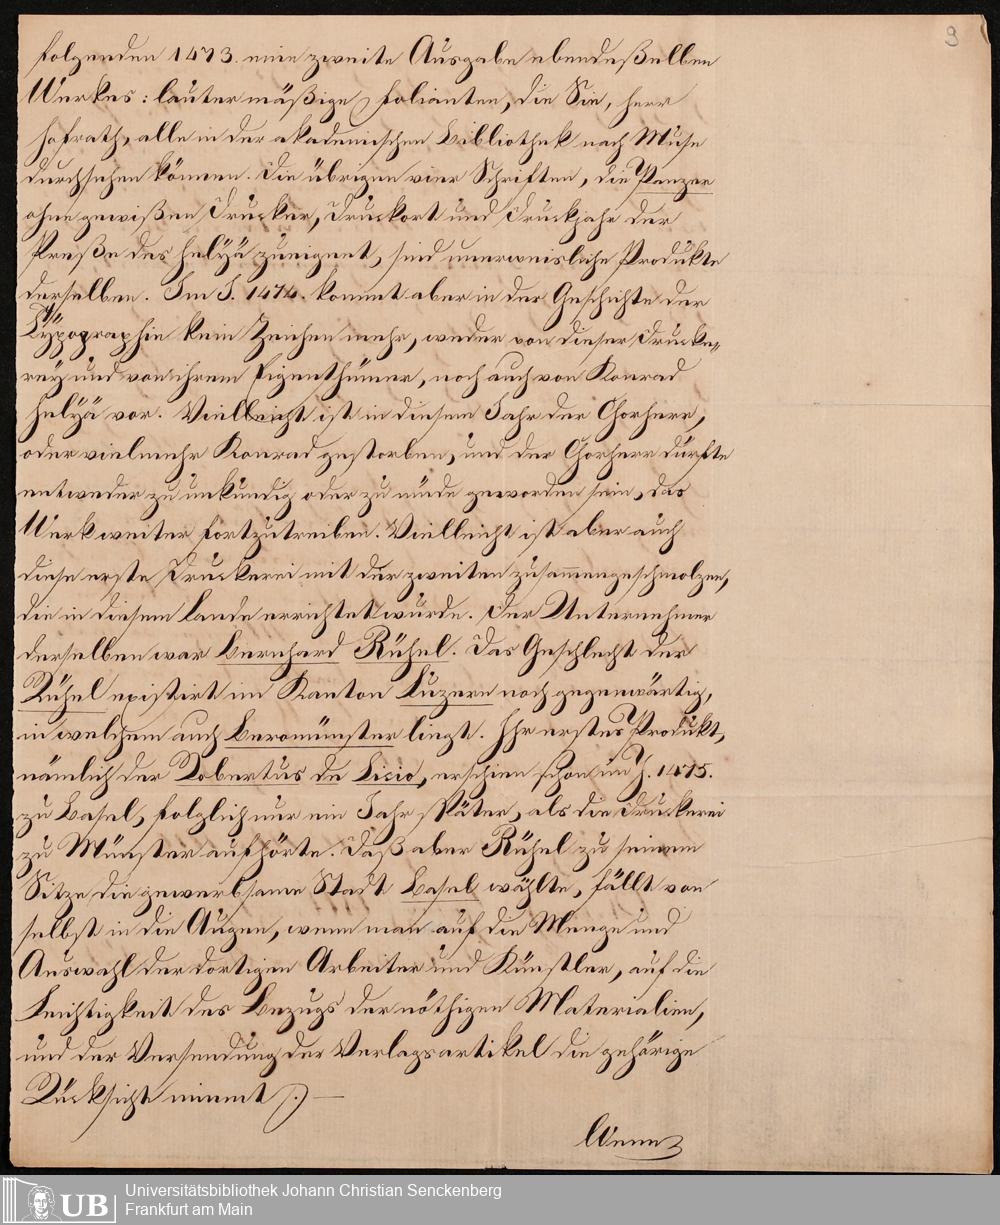 9
folgenden 1473. eine zweite Ausgabe ebendeßelben
Werkes: lauter mäßige Folianten, die Sie, Herr
Hofrath, alle in der akademischen Bibliothek nach Muse
durchsehen können. Die übrigen vier Schriften, die Panzer
ohne gewißen Drucker, Druckort und Druckjahr der
Preße des Helyä zueignet, sind unerweisliche Produkte
derselben. Im J. 1474. kommt aber in der Geschichte der
Typographie kein Zeichen mehr, weder von dieser Drucke„
rey und von ihrem Eigenthümer, noch auch von Konrad
Helyä vor. Vielleicht ist in diesem Jahr der Chorherr,
oder vielmehr Konrad gestorben, und der Chorherr dürfte
entweder zu unkundig oder zu müde geworden sein, das
Werk weiter fortzutreiben. Vielleicht ist aber auch
diese erste Druckerei mit der zweiten zusam̅engeschmolzen,
die in diesem Lande errichtet wurde. Der Unternehmer
derselben war Bernhard Rühel. Das Geschlecht der
Rühel existirt im Kanton Luzern noch gegenwärtig,
in welchem auch Beromünster liegt. Ihr erstes Produkt,
nämlich der Robertus de Licio, erschien schon im J. 1475.
zu Basel, folglich nur ein Jahr später, als die Druckerei
zu Münster aufhörte. Daß aber Rühel zu seinem
Sitze die gewerbsame Stadt Basel wählte, fällt von
selbst in die Augen, wenn man auf die Menge und
Auswahl der dortigen Arbeiter und Künstler, auf die
Leichtigkeit des Bezugs der nöthigen Materialien,
und der Versendung der Verlagsartikel die gehörige
Rücksicht nimmt.) —
Wenn
UB
Universitätsbibliothek Johann Christian Senckenberg
Frankfurt am Main